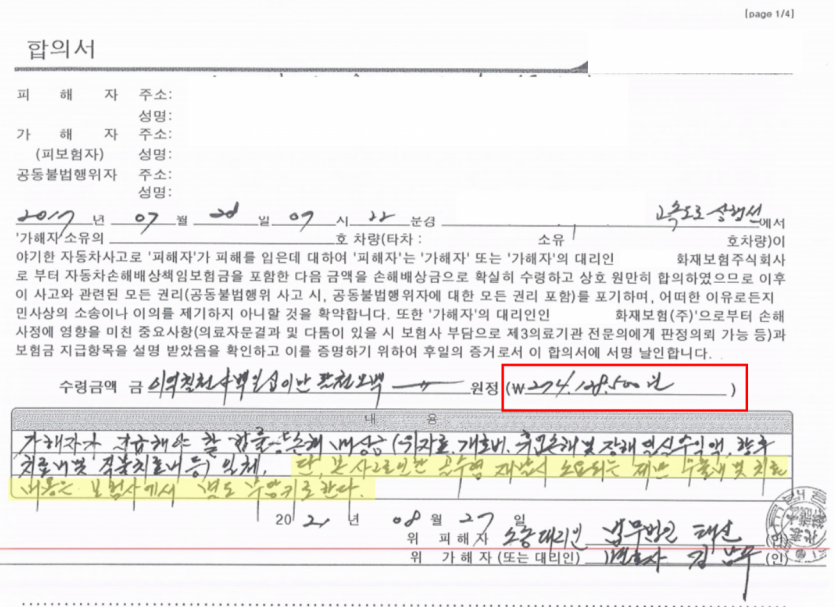 [page 1/4]
합의서
피 해 자 주소:
성명:
가 해 자 주소:
(피보험자) 성명:
공동불법행위자 주소:
성명:
2017 년 07 월 28 일 07 시 22 분경 고속도로 상행선 에서
'가해자'소유의 호 차량(타차 : 소유 호차량)이
야기한 자동차사고로 '피해자'가 피해를 입은데 대하여 '피해자'는 '가해자' 또는 '가해자'의 대리인 화재보험주식회사
로 부터 자동차손해배상책임보험금을 포함한 다음 금액을 손해배상금으로 확실히 수령하고 상호 원만히 합의하였으므로 이후
이 사고와 관련된 모든 권리(공동불법행위 사고 시, 공동불법행위자에 대한 모든 권리 포함)를 포기하며, 어떠한 이유로든지
민사상의 소송이나 이의를 제기하지 아니할 것을 확약합니다. 또한 '가해자'의 대리인인 화재보험(주)'으로부터 손해
사정에 영향을 미친 중요사항(의료자문결과 및 다툼이 있을 시 보험사 부담으로 제3의료기관 전문의에게 판정의뢰 가능 등)과
보험금 지급항목을 설명 받았음을 확인하고 이를 증명하기 위하여 후일의 증거로서 이 합의서에 서명 날인합니다.
수령금액 금 이억칠천사백일십이만팔천오백 원정 (₩ 274,128,500 )
내 용
가해자가 지급해야 할 손해배상금(위자료, 개호비, 휴업손해 및 장해 일실수익액, 향후
치료비 및 직불치료비 등) 일체. 단, 본 사고로 인한 재발시 소요되는 제반 수술비 및 치료
비용은 보험사에서 별도 부담키로 한다.
2021 년 08 월 27 일
위 피해자 소송대리인 법무법인 태신 (인)
위 가해자 (또는 대리인) 변호사 김 (인)